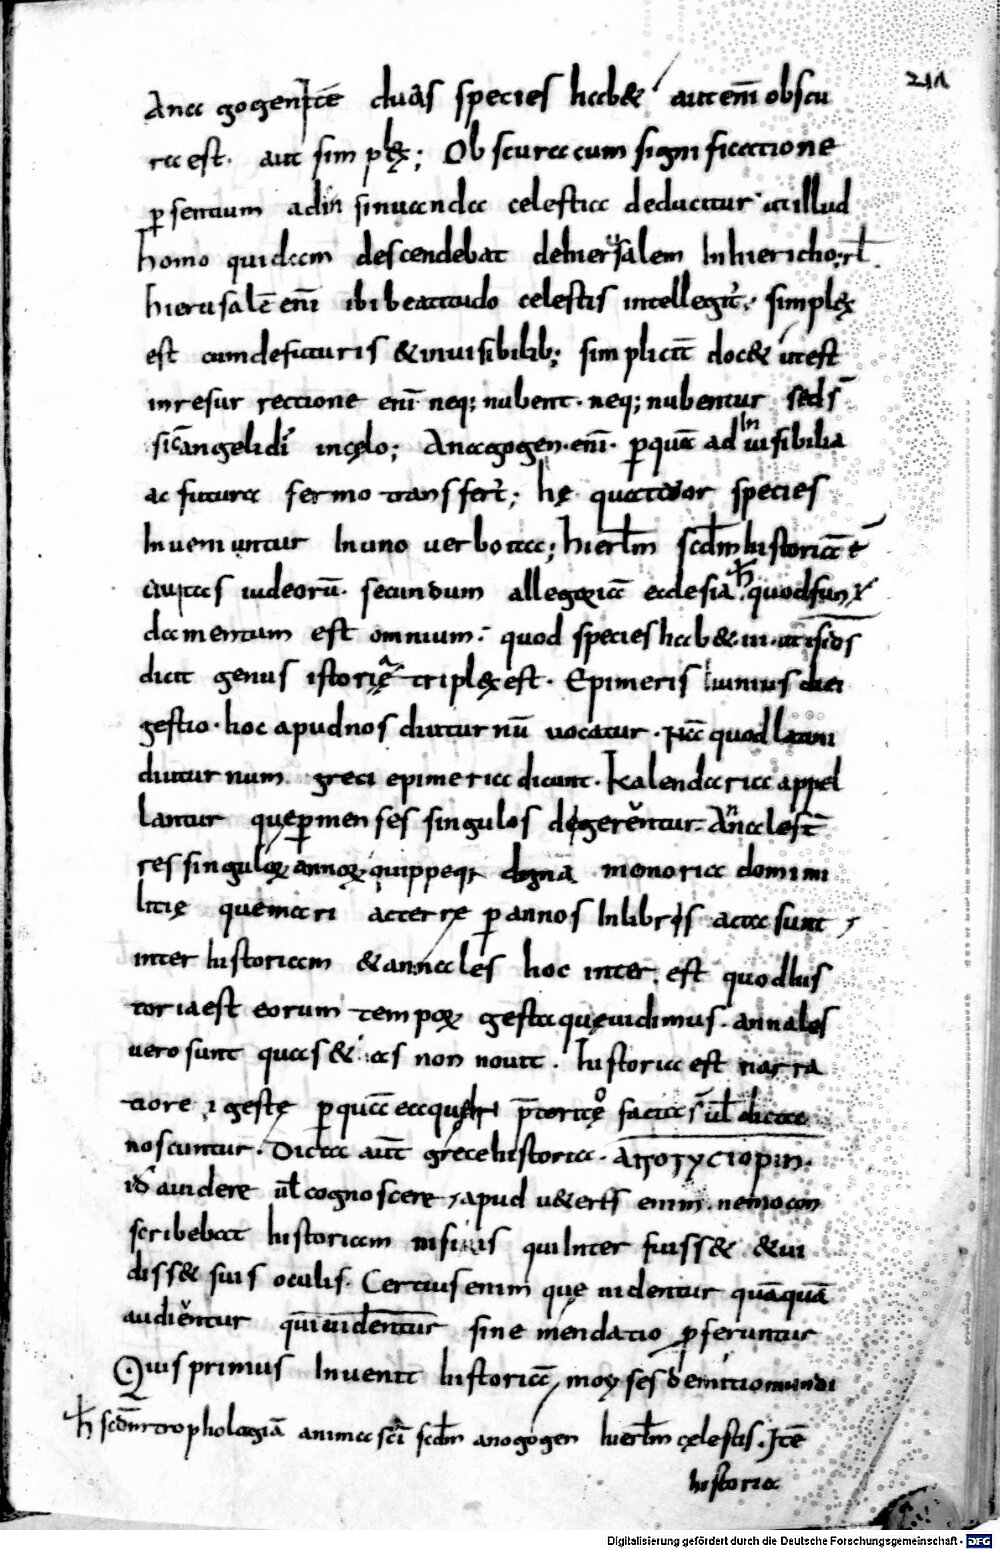 211
Anagogen Itē duas species habet aut enī obscu
ra est. aut simplę; Obscura cum significatione
ꝑ sensum ad insinuanda celestia deducitur ut illud
homo quidam descendebat de hierusalem In hiericho; rł
hierusalē enī ibi beatitudo celestis intellegit̄; simplę
est cum de futuris & inuisibilib; simplicit̄ docet ut est
in resurrectione enī neq; nubent. neq; nubentur sed s̄
sic̄ angeli dī in cęlo; Anagogen. enī. ꝑ quā ad inuisibilia
ac futura sermo transfert̄; hę quattuor species
Inueniuntur In uno uerbo ita; hierłm scdm historiā ē
ciuitas iudeorū. secundum allegoriā ecclesia. ħ quod fun
damentum est omnium. quod species habet. iii. ut isidos
dicit genus istorię triplex est. Epimeris unius diei
gestio. hoc apud nos diuturnū uocatur. Nā quod latini
diuturnum. greci epimerica dicunt. Kalendaria appel
lantur quę ꝑ menses singulos degerentur. Annales st̄
res singuloꝝ annoꝝ. quippeq; digna memoria domi mi
litię que mari ac terrę ꝑ annos In libris acta sunt,
inter historiam & annales hoc inter est quod his
toria est eorum tempoꝝ gesta quę uidimus. annales
uero sunt quas & as non nouit. historia est narra
tio rei gestę ꝑ quā ea quę p̄terito facta s̄ ul dicta
noscuntur. Dicta aut̄ grece historia.
id ē a uidere uł cognoscere, apud ueteres enim. nemo con
scribebat historiam nisi is qui Inter fuisset & ui
disset suis oculis. Certius enim quę uidentur quāquā
audientur que uidentur sine mendatio ꝓferuntur
Quis primus Inuenit historiā, moyses de initio mundi
ħ scdm trophologiā anima scī scdm anogogen hierłm cęlestis. Itē
historia
Digitalisierung gefördert durch die Deutsche Forschungsgemeinschaft - DFG